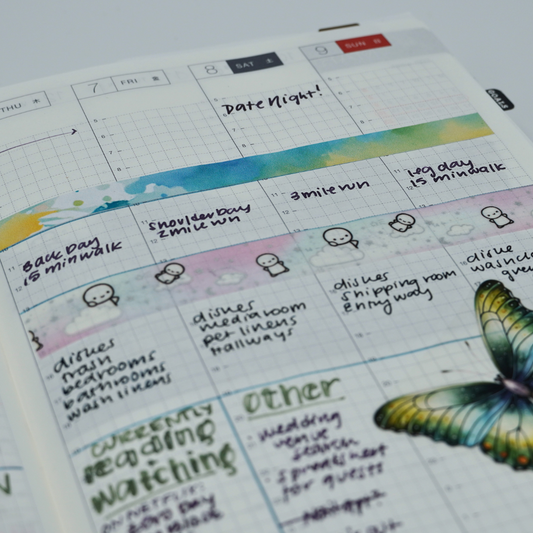 THU 木
7 FRI 金
8 SAT 土
9 SUN 日
Date Night!
Back Day
15 min walk
Shoulder Day
2 mile run
3 mile run
Leg day
15 min walk
dishes
trash
bedrooms
bathrooms
wash linens
dishes
media room
pet linens
Hallways
dishes
Shipping room
Entry way
dishe
CURRENTLY
reading
watching
Other
wedding
venue
search
spreadsheet
for guests